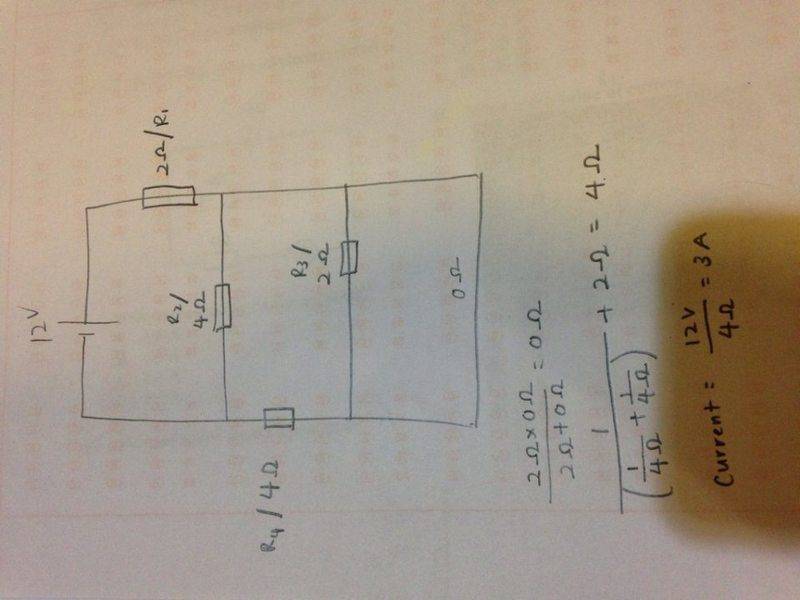 12V
2Ω/R1
R2/
4Ω
R3/
2Ω
R4/4Ω
0Ω
2Ω×0Ω
2Ω+0Ω
=0Ω
1
(1/4Ω + 1/4Ω)
+ 2Ω = 4Ω
Current = 12V/4Ω = 3A